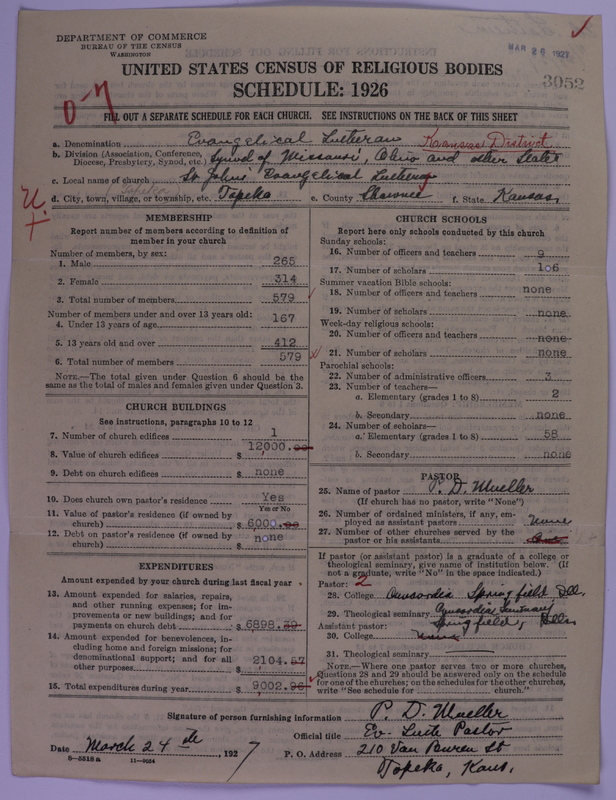 DEPARTMENT OF COMMERCE
BUREAU OF THE CENSUS
WASHINGTON
MAR 26 1927
UNITED STATES CENSUS OF RELIGIOUS BODIES
SCHEDULE: 1926
3052
0-7
FILL OUT A SEPARATE SCHEDULE FOR EACH CHURCH. SEE INSTRUCTIONS ON THE BACK OF THIS SHEET
a. Denomination Evangelical Lutheran Kansas District
b. Division (Association, Conference, Diocese, Presbytery, Synod, etc.) Synod of Missouri, Ohio and other States
c. Local name of church St Johns Evangelical Lutheran
Topeka
d. City, town, village, or township, etc. Topeka e. County Shawnee f. State Kansas
MEMBERSHIP
Report number of members according to definition of
member in your church
Number of members, by sex:
1. Male 265
2. Female 314
3. Total number of members 579
Number of members under and over 13 years old:
4. Under 13 years of age 167
5. 13 years old and over 412
6. Total number of members 579
NOTE.—The total given under Question 6 should be
same as the total of males and females given under Question 3.
CHURCH BUILDINGS
See instructions, paragraphs 10 to 12
7. Number of church edifices 1
8. Value of church edifices $ 12000.00
9. Debt on church edifices $ none
10. Does church own pastor's residence Yes
Yes or No
11. Value of pastor's residence (if owned by
church) $ 6000.00
12. Debt on pastor's residence (if owned by
church) $ none
EXPENDITURES
Amount expended by your church during last fiscal year
13. Amount expended for salaries, repairs,
and other running expenses; for im-
provements or new buildings; and for
payments on church debt $ 6898.39
14. Amount expended for benevolences, in-
cluding home and foreign missions; for
denominational support; and for all
other purposes $ 2104.57
15. Total expenditures during year $ 9002.96
CHURCH SCHOOLS
Report here only schools conducted by this church
Sunday schools:
16. Number of officers and teachers 9
17. Number of scholars 106
Summer vacation Bible schools:
18. Number of officers and teachers none
19. Number of scholars none
Week-day religious schools:
20. Number of officers and teachers none
21. Number of scholars none
Parochial schools:
22. Number of administrative officers 3
23. Number of teachers—
a. Elementary (grades 1 to 8) 2
b. Secondary none
24. Number of scholars—
a. Elementary (grades 1 to 8) 58
b. Secondary none
PASTOR
25. Name of pastor P. D. Mueller
(If church has no pastor, write "None")
26. Number of ordained ministers, if any, em-
ployed as assistant pastors None
27. Number of other churches served by the
pastor or his assistants
If pastor (or assistant pastor) is a graduate of a college or
theological seminary, give name of institution below. (If
not a graduate, write "No" in the space indicated.)
Pastor: 2
28. College Concordia Springfield Ill.
29. Theological seminary Concordia Seminary
Assistant pastor: Springfield, Ills
30. College None
31. Theological seminary
NOTE.—Where one pastor serves two or more churches,
Questions 28 and 29 should be answered only on the schedule
for one of the churches; on the schedules for the other churches,
write "See schedule for church."
Signature of person furnishing information P. D. Mueller
Official title Ev. Luth Pastor
Date March 24th, 1927 P. O. Address 210 Van Buren St
Topeka, Kans.
8-5518a 11-9154